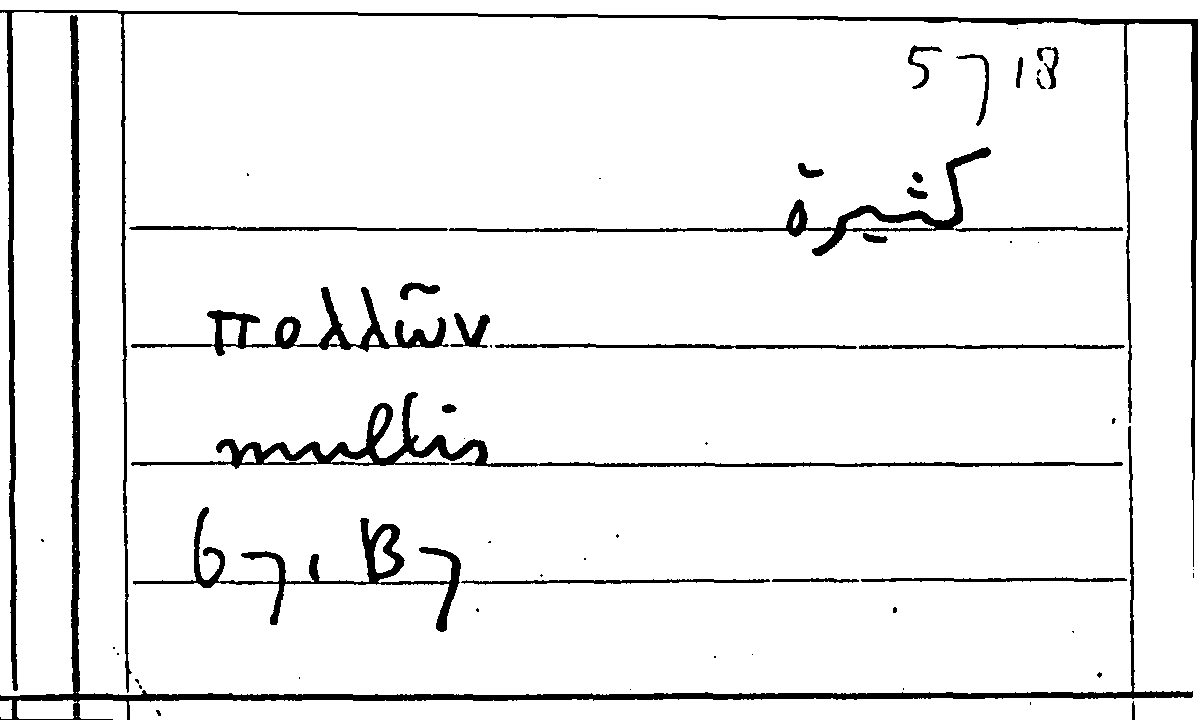 5718
كثيرة
πολλῶν
multis
67, B7